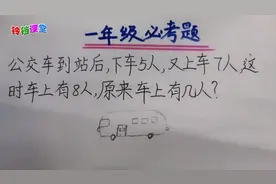 铃铃课堂
一年级必考题
公交车到站后,下车5人,又上车7人,这
时车上有8人,原来车上有几人?